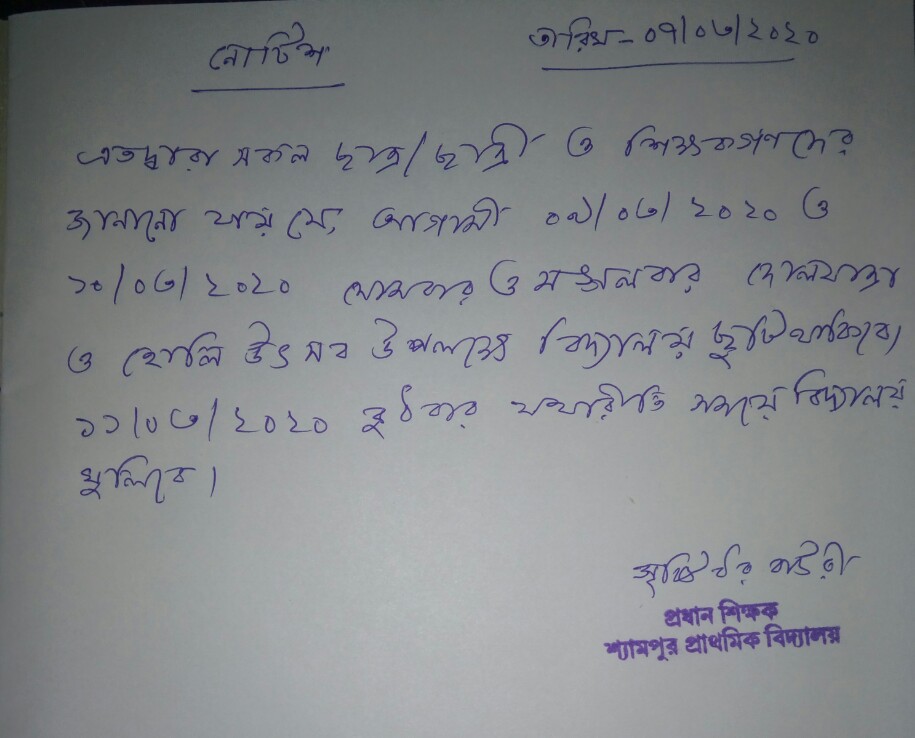 নোটিশ
তারিখ - ০৭/০৩/২০২০
এতদ্বারা সকল ছাত্র/ছাত্রী ও শিক্ষকগণদের
জানানো যায় যে, আগামী ০৯/০৩/২০২০ ও
১০/০৩/২০২০ সোমবার ও মঙ্গলবার দোলযাত্রা
ও হোলি উৎসব উপলক্ষে বিদ্যালয় ছুটি থাকিবে।
১১/০৩/২০২০ বুধবার যথারীতি সময়ে বিদ্যালয়
খুলিবে।
সৃষ্টিধর বাউরী
প্রধান শিক্ষক
শ্যামপুর প্রাথমিক বিদ্যালয়